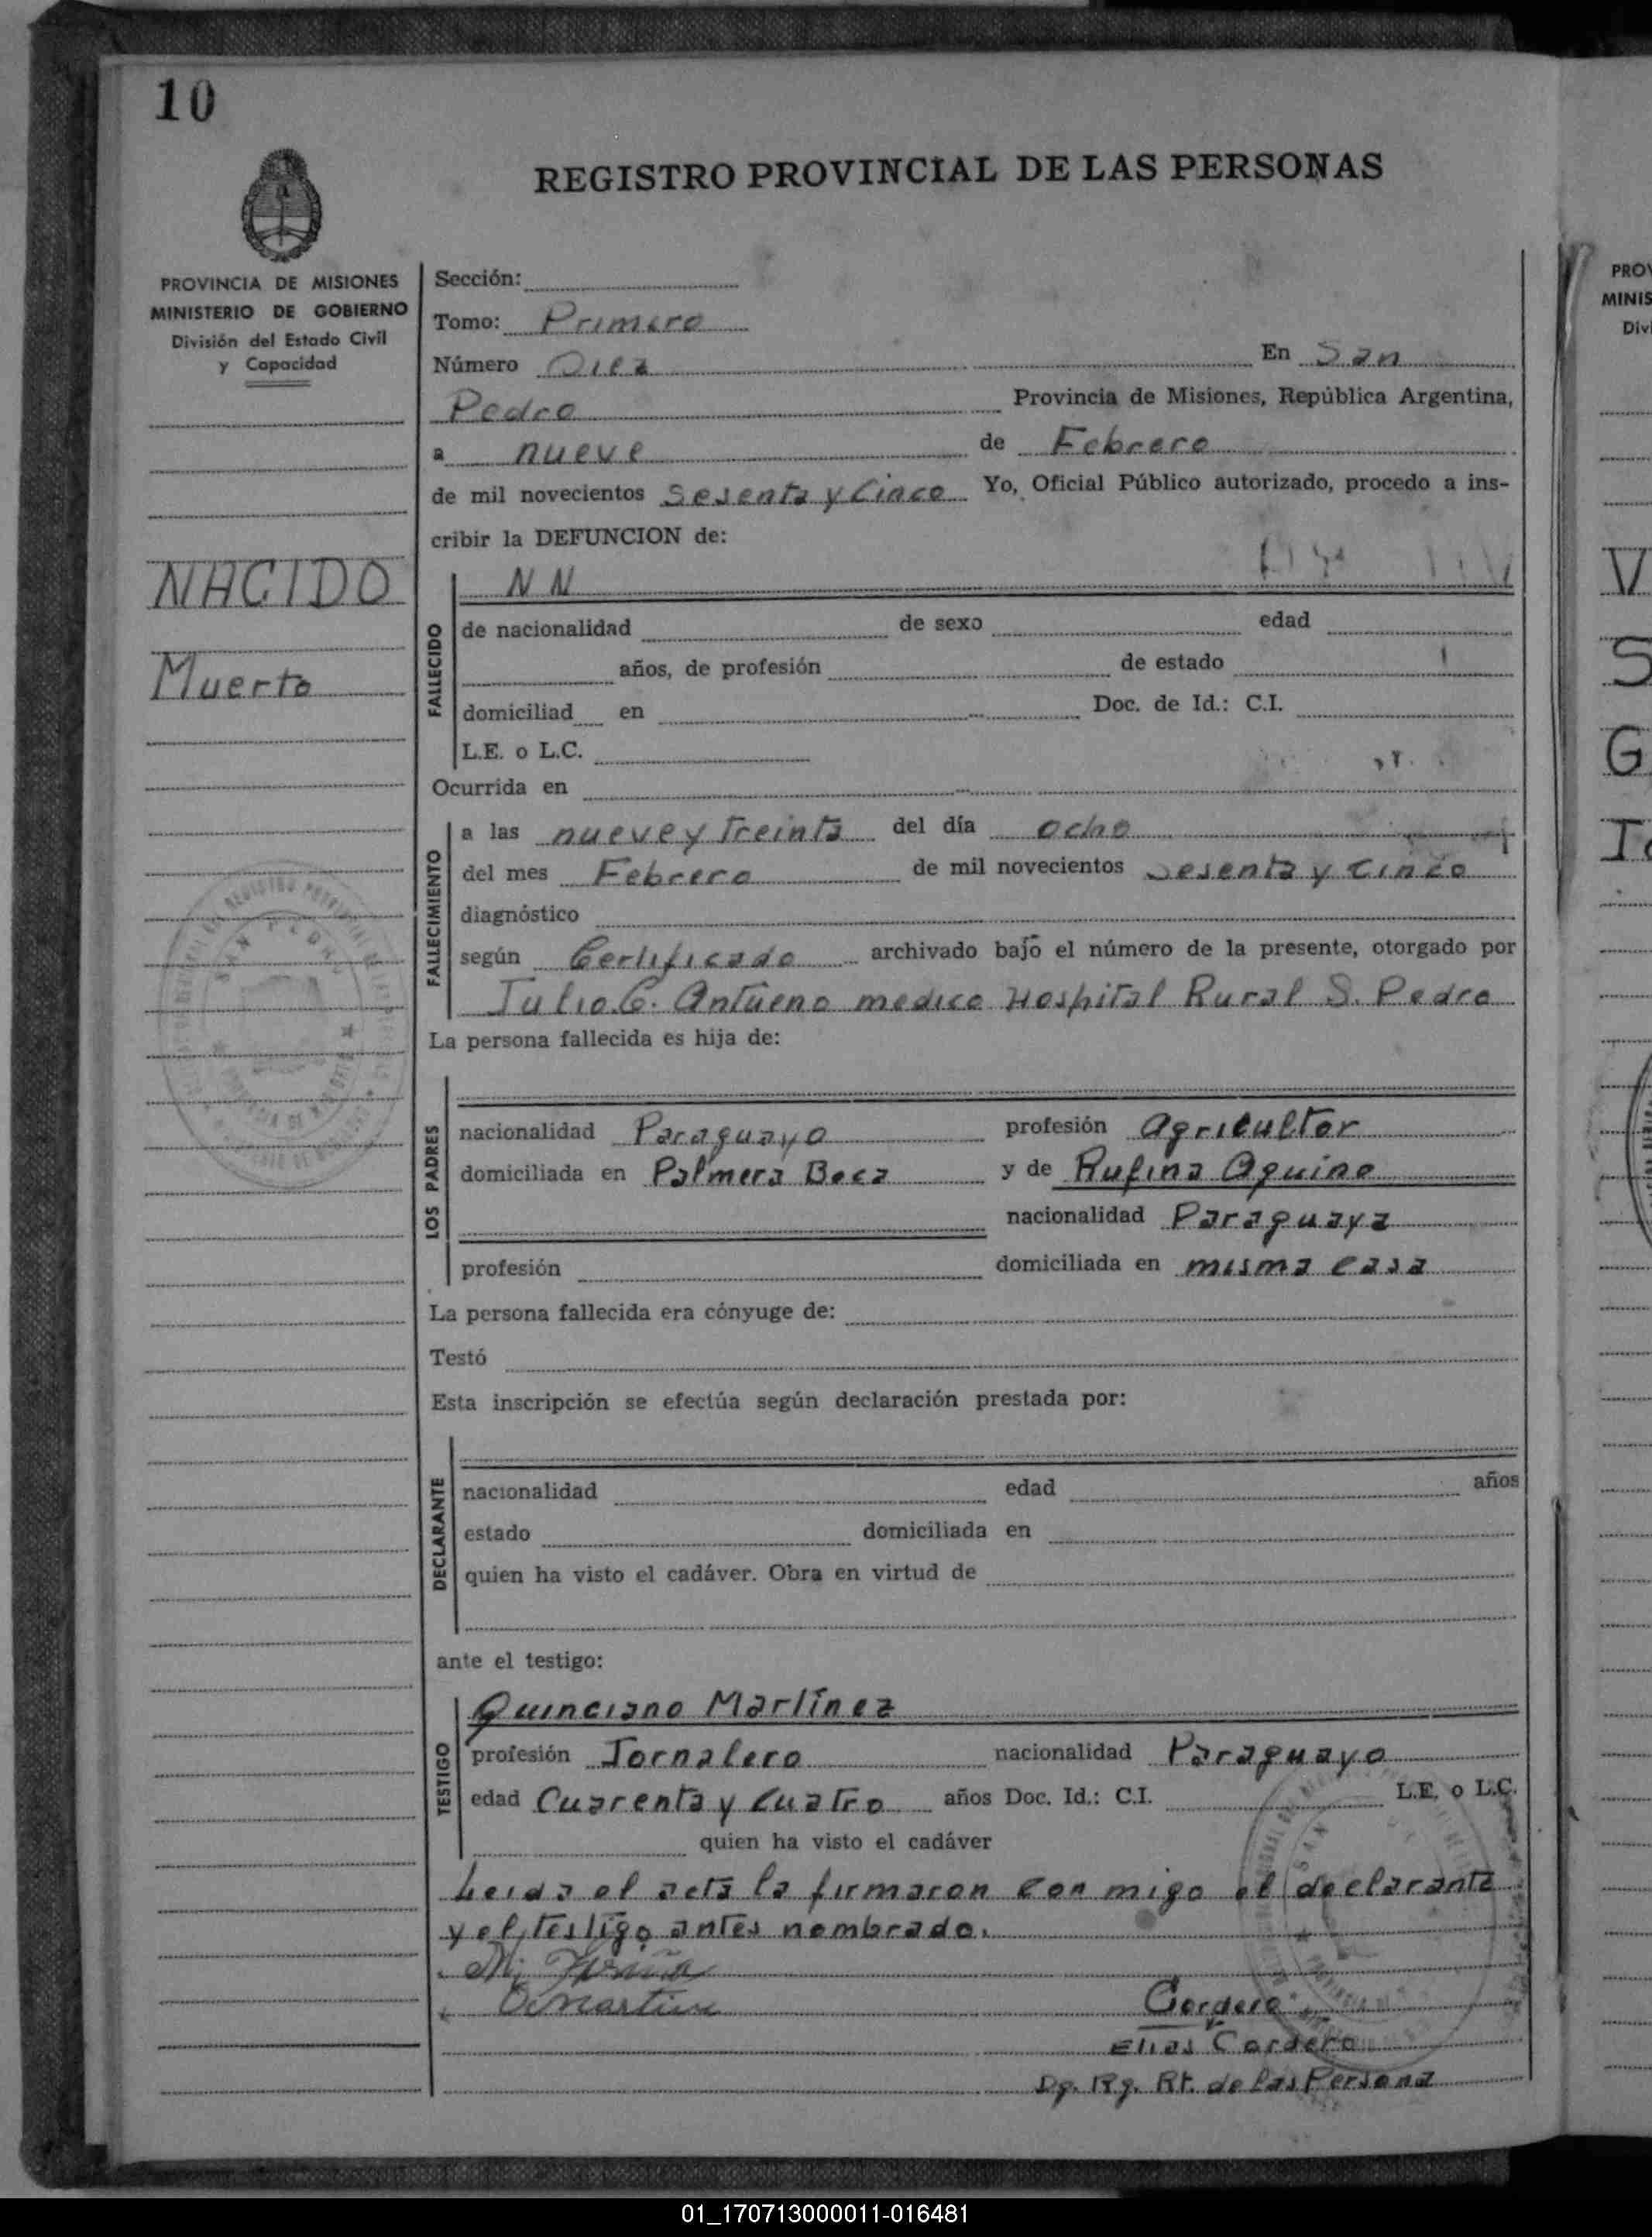 10
REGISTRO PROVINCIAL DE LAS PERSONAS
PROVINCIA DE MISIONES
MINISTERIO DE GOBIERNO
División del Estado Civil
y Capacidad
NACIDO
Muerto
Sección:
Tomo: Primero
Número Diez En San
Pedro Provincia de Misiones, República Argentina,
a nueve de Febrero
de mil novecientos Sesenta y Cinco Yo, Oficial Público autorizado, procedo a ins-
cribir la DEFUNCION de:
FALLECIDO
N N
de nacionalidad de sexo edad
años, de profesión de estado
domiciliad en Doc. de Id.: C.I.
L.E. o L.C.
Ocurrida en
FALLECIMIENTO
a las nueve y Treinta del día ocho
del mes Febrero de mil novecientos Sesenta y Cinco
diagnóstico
según Certificado archivado bajo el número de la presente, otorgado por
Julio C. medico Hospital Rural S. Pedro
La persona fallecida es hija de:
LOS PADRES
nacionalidad Paraguayo profesión Agricultor
domiciliada en Palmera Boca y de Rufina Aquino
nacionalidad Paraguaya
profesión domiciliada en misma casa
La persona fallecida era cónyuge de:
Testó
Esta inscripción se efectúa según declaración prestada por:
DECLARANTE
nacionalidad edad años
estado domiciliada en
quien ha visto el cadáver. Obra en virtud de
ante el testigo:
TESTIGO
Quinciano Martínez
profesión Jornalero nacionalidad Paraguayo
edad Cuarenta y Cuatro años Doc. Id.: C.I. L.E. o L.C.
quien ha visto el cadáver
Leida el acta la firmaron con migo el declarante
y el testigo antes nombrado.
Cordero
Elias Cordero
Dg. Rg. Rt. de las Persona
PROV
MINIS
Div
V
S
G
01_170713000011-016481